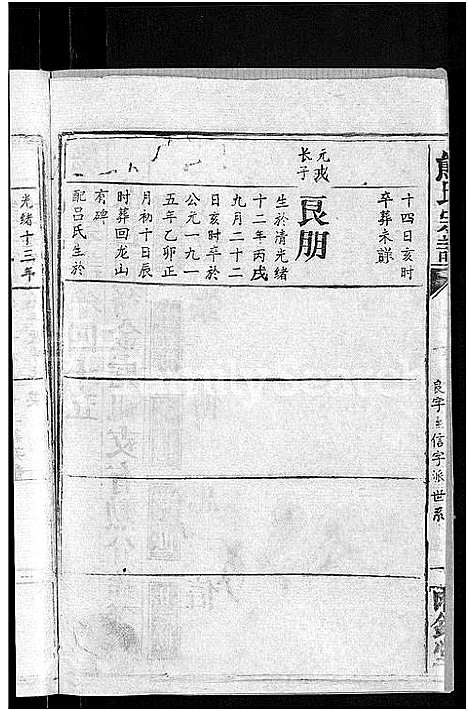 熊氏宗譜
良字至信字派世系
十四日亥时
卒葬未詳
元戎
长子
良朋
生於清光緒
十二年丙戌
九月二十二
日亥時卒於
公元一九一
五年乙卯正
月初十日辰
时葬回龙山
有碑
配吕氏生於
光緒十三年